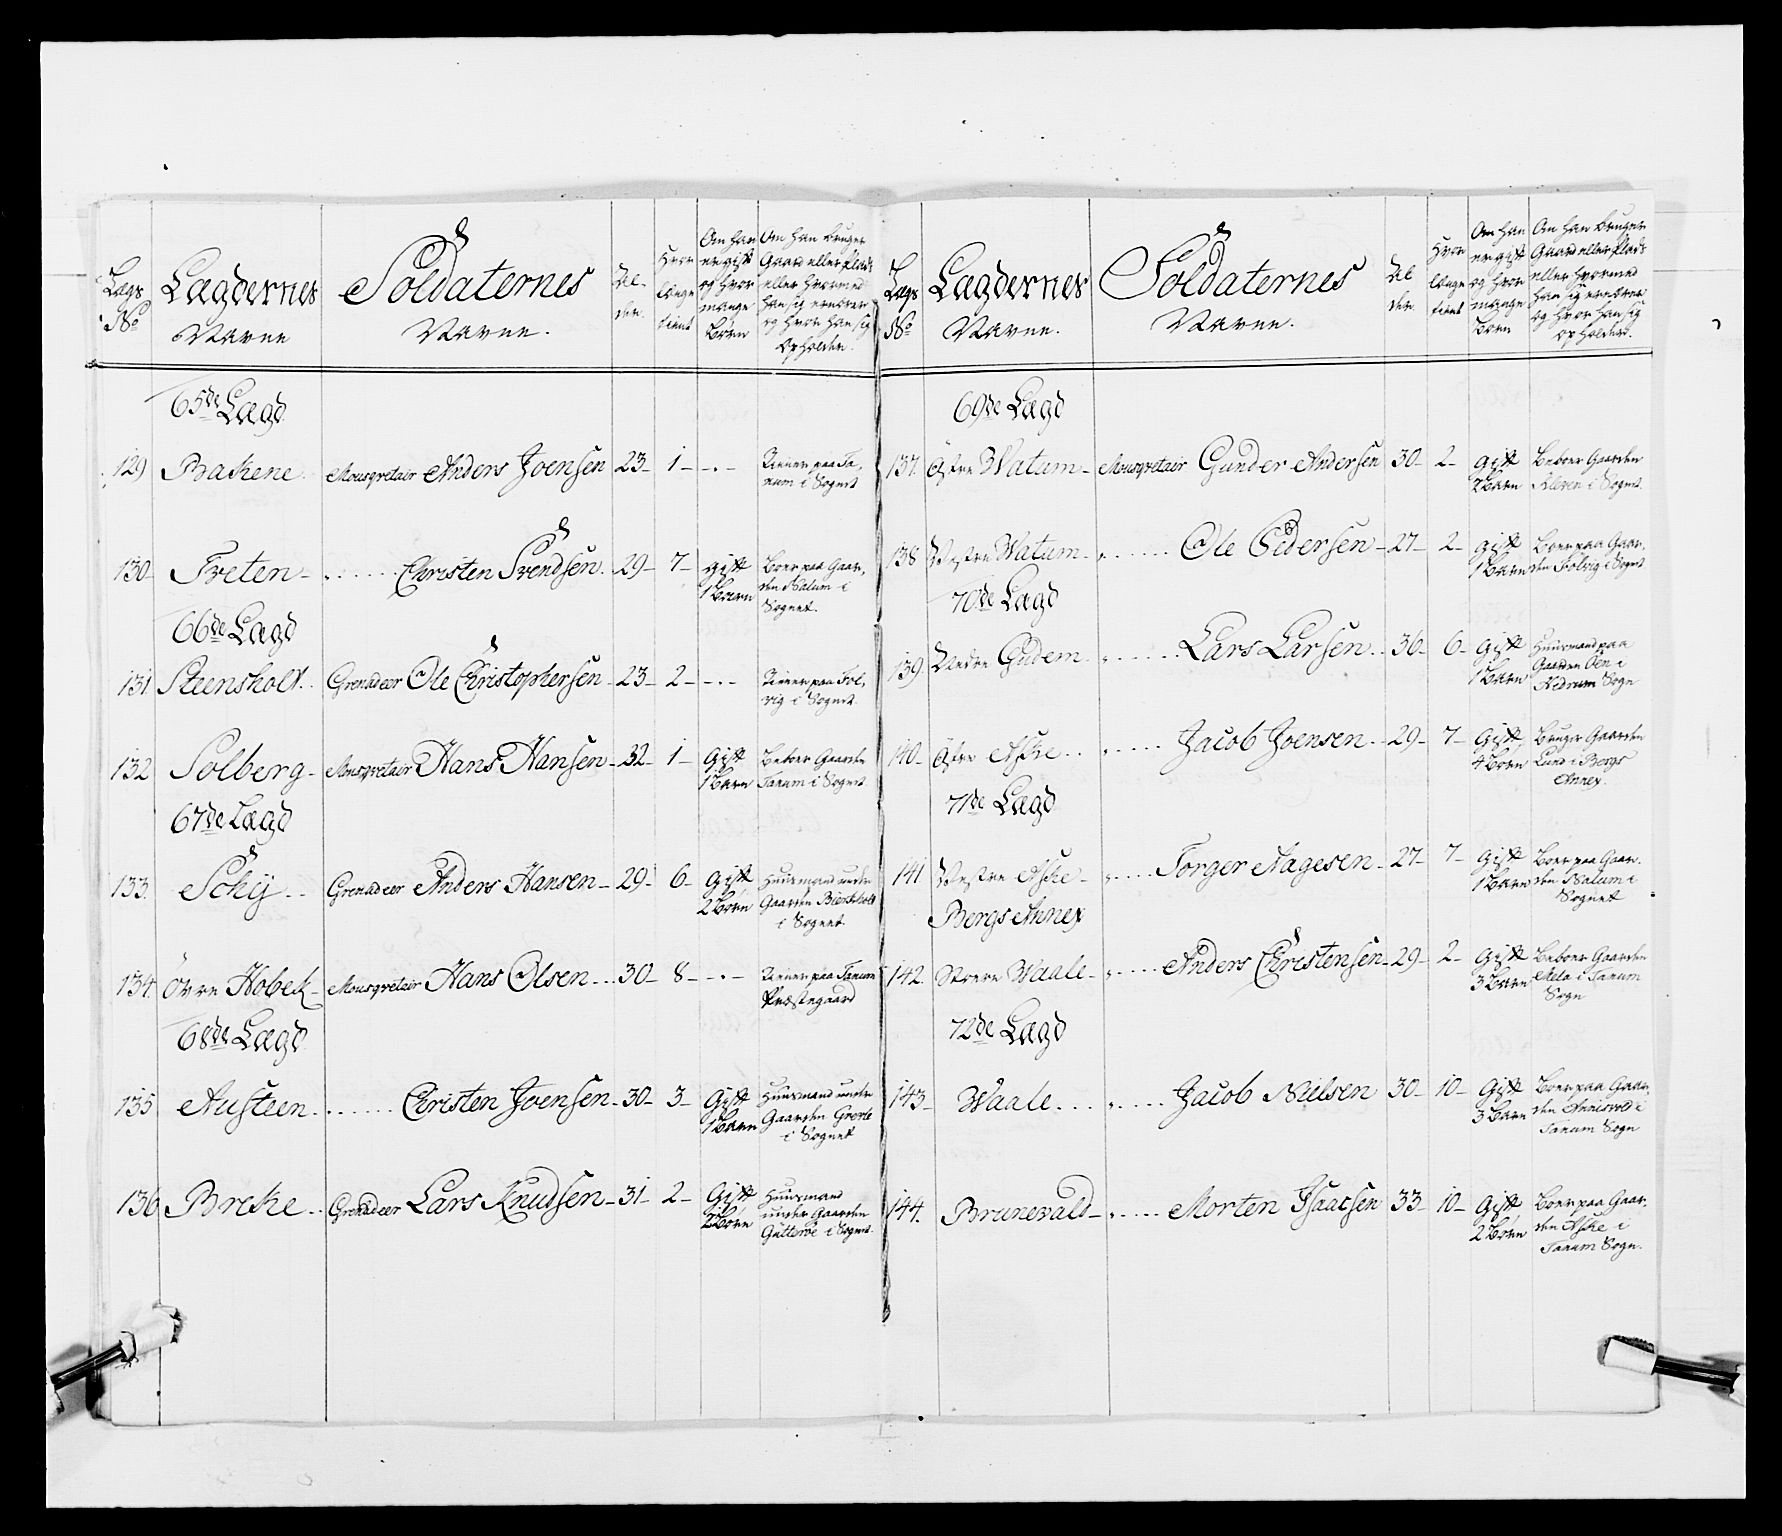 Lægs No
Lægdernes Navne
Soldaternes Navne.
Al- der.
Hvor længe tient
Om han er gift og hvor mange Børn
Om han bruger Gaard eller Plads eller hvormed han sig ernærer og hvor han sig opholder.
65de Lægd
129 Bakene Mousqvetair Anders Joensen 23 1 Tiener paa Ta- num i Sognet
130 Freten Christen Svendsen 29 7 gift 1 Barn Boer paa Gaar- den Nalum i Sognet.
66de Lægd
131 Steensholt Grenadeer Ole Christophersen 23 2 Tiener paa Fol- vig i Sognet
132 Solberg Mousqvetair Hans Hansen 32 1 Gift 1 Barn Beboer Gaarden Tanum i Sognet
67de Lægd
133. Schy Grenadeer Anders Hansen 29 6 Gift 2 Børn Huusmand under Gaarden i Sognet
134 Øvre Hobek Mousqvetair Hans Olsen 30 8 Tiener paa Tanum Præstegaard
68de Lægd
135 Austeen Christen Joensen 30 3 Gift 1 Barn Huusmand under Gaarden i Sognet
136 Breke Grenadeer Lars Knudsen 31 2 Gift 2 Børn Huusmand under Gaarden i Sognet.
Lægs No
Lægdernes Navne.
Soldaternes Navne.
Al der.
Hvor længe tient
Om han er gift og hvor mange Børn
Om han bruger Gaard eller Plads eller hvormed han sig ernærer og hvor han sig opholder.
69de Lægd
137. Østre Watum Mousqvetair Gunder Andersen 30 2 Gift 2 Børn Beboer Gaarden Kleven i Sognet
138 Westre Watum Ole Pedersen 27 2 gift 1 Barn Boer paa Gaar- den Folvig i Sognet
70de Lægd
139 Nedre Gudem Lars Larsen 36 6 Gift 1 Barn Huusmand paa Gaarden Øen i Hedrum Sogn
140 Østre Aske Jacob Joensen 29 7 Gift 4 Børn Bruger Gaarden Lund i Bergs Annex.
71de Lægd
141 Westre Aske Torger Aagesen 27 7 Gift 1 Barn Boer paa Gaar- den Nalum i Sognet
Bergs Annex
142. Store Waale Anders Christensen 29 2 Gift 3 Børn Beboer Gaarden Mela i Tanum Sogn
72de Lægd
143 Waale Jacob Nielsen 30 10 Gift 3 Børn Boer paa Gaar- den Annisvold i Tanum Sogn
144. Brunevald Morten Isaacsen 33 10 Gift 2 Børn Boer paa Gaar- den Aske i Tanum Sogn.